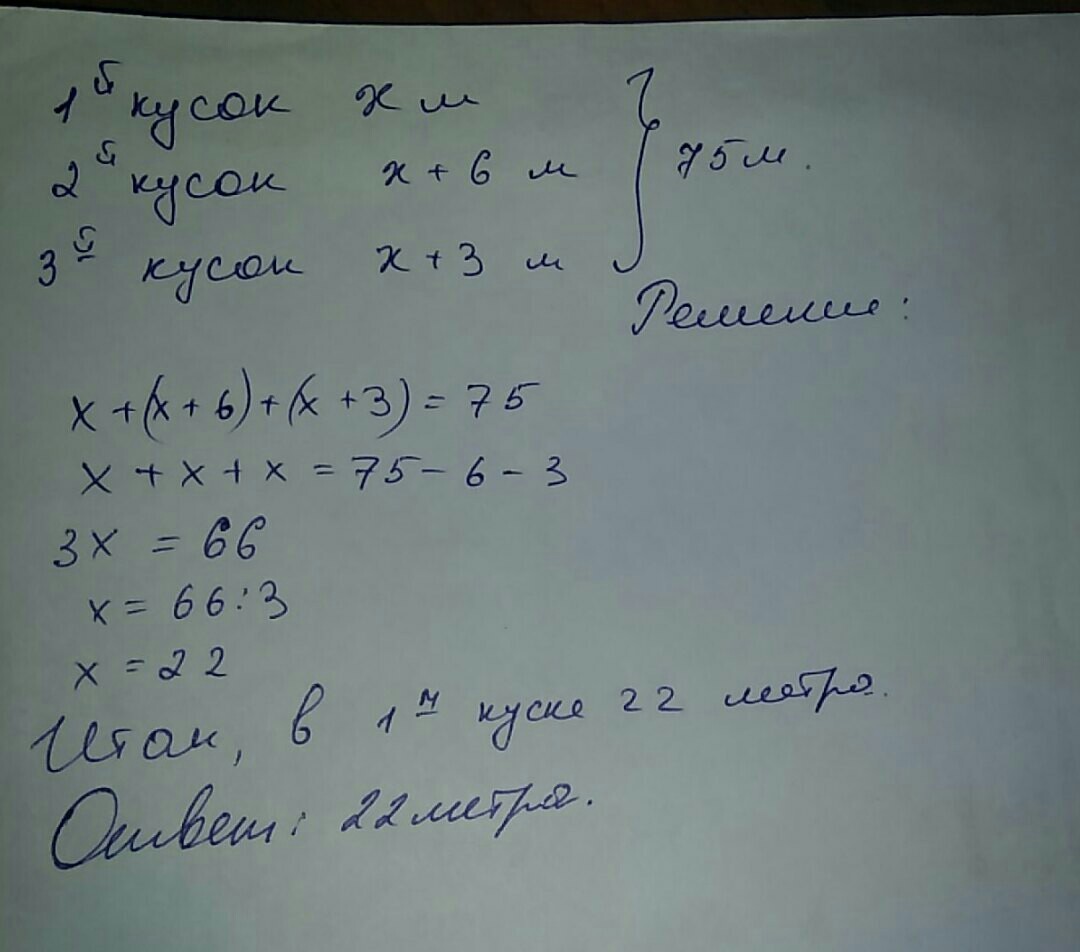 1й кусок x м
2й кусок x + 6 м } 75 м.
3й кусок x + 3 м
Решение:
x + (x + 6) + (x + 3) = 75
x + x + x = 75 - 6 - 3
3x = 66
x = 66 : 3
x = 22
Итак, в 1м куске 22 метра.
Ответ: 22 метра.